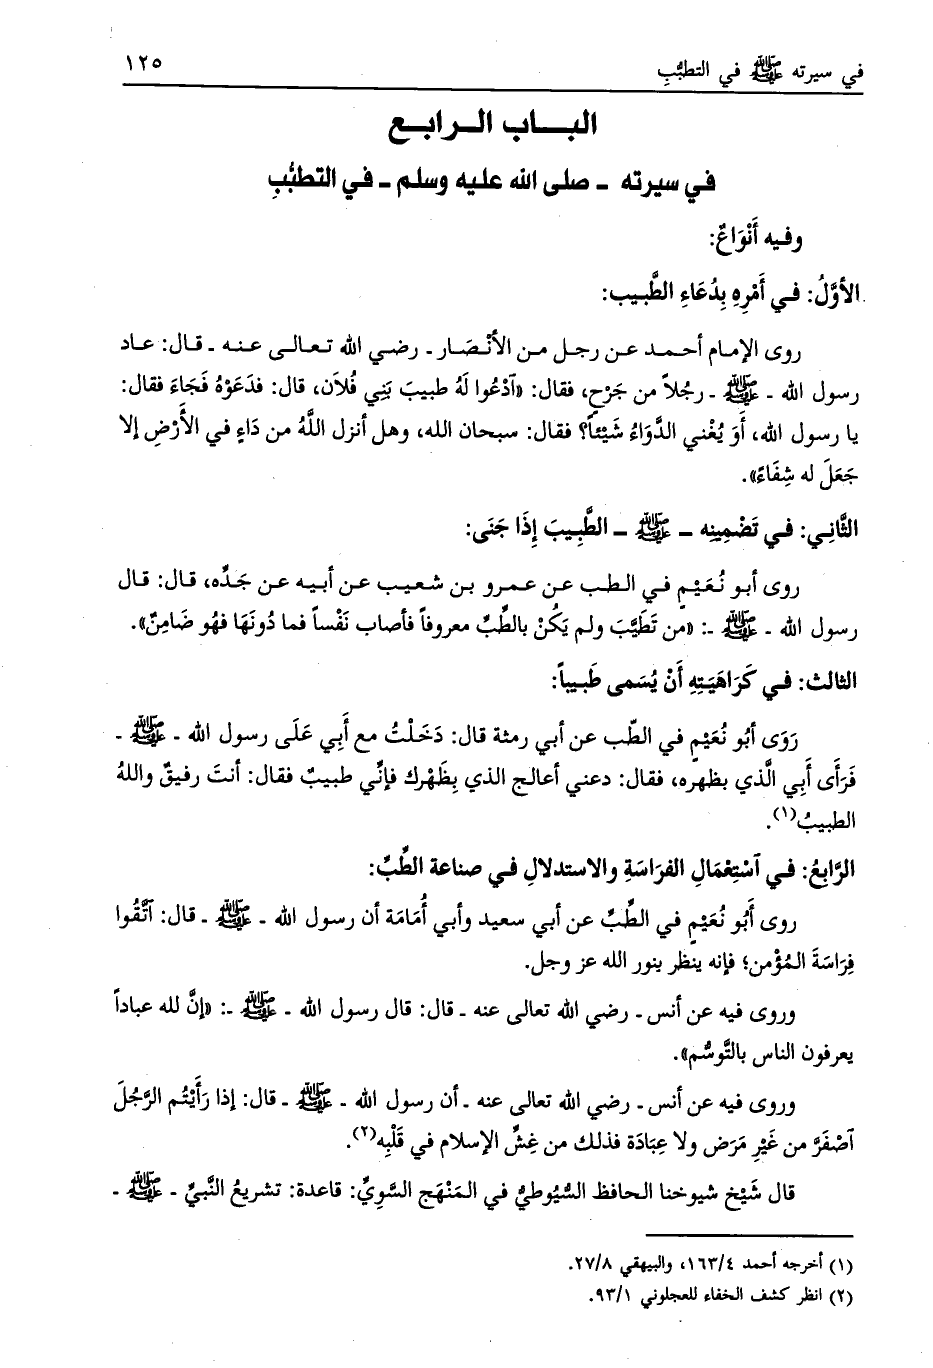 في سيرته ﷺ في التطبُّبِ
١٢٥
البـــاب الـرابـع
في سيرته ـ صلى الله عليه وسلم ـ في التطبُّبِ
وفيه أَنْوَاعٌ:
الأوَّلُ: في أَمْرِهِ بِدُعَاءِ الطَّبيب:
روى الإمام أحمد عن رجل من الأنْصَار ـ رضي الله تعالى عنه ـ قال: عاد
رسول الله ـ ﷺ ـ رجُلاً من جَرْحٍ، فقال: «اَدْعُوا لَهُ طبيبَ بَنِي فُلاَن، قال: فدَعَوْهُ فَجَاءَ فقال:
يا رسول الله، أَوَ يُغْني الدَّوَاءُ شَيْئاً؟ فقال: سبحان الله، وهل أنزل اللَّهُ من دَاءٍ في الأَرْضِ إلا
جَعَلَ له شِفَاءً».
الثَّانِي: في تَضْمِينه ـ ﷺ ـ الطَّبِيبَ إِذَا جَنَى:
روى أبو نُعَيْمٍ في الطب عن عمرو بن شعيب عن أبيه عن جَدِّه، قال: قال
رسول الله ـ ﷺ ـ: «من تَطَبَّبَ ولم يَكُنْ بالطِّبِّ معروفاً فأصاب نَفْساً فما دُونَهَا فهُو ضَامِنٌ».
الثالث: في كَرَاهَيَتِهِ أَنْ يُسَمى طَبيباً:
رَوَى أبُو نُعَيْمٍ في الطّب عن أبي رمثة قال: دَخَلْتُ مع أَبِي عَلَى رسول الله ـ ﷺ ـ
فَرَأَى أَبِي الَّذي بظهره، فقال: دعني أعالج الذي بِظَهْرك فإنِّي طبيبٌ فقال: أنتَ رفيقٌ واللهُ
الطبيبُ(١).
الرَّابِعُ: في اَسْتِعْمَالِ الفرَاسَةِ والاستدلالِ في صناعة الطِّبِّ:
روى أَبُو نُعَيْمٍ في الطِّبِّ عن أبي سعيد وأبي أُمَامَة أن رسول الله ـ ﷺ ـ قال: اَتَّقُوا
فِرَاسَةَ المُؤْمن؛ فإنه ينظر بنور الله عز وجل.
وروى فيه عن أنس ـ رضي الله تعالى عنه ـ قال: قال رسول الله ـ ﷺ ـ: «إنَّ لله عباداً
يعرفون الناس بالتَّوسُّم».
وروى فيه عن أنس ـ رضي الله تعالى عنه ـ أن رسول الله ـ ﷺ ـ قال: إذا رَأَيْتُم الرَّجُلَ
اَصْفَرَّ من غَيْرِ مَرَض ولا عِبَادَة فذلك من غِشِّ الإسلام في قَلْبِه(٢).
قال شَيْخ شيوخنا الحافظ السُّيُوطيُّ في المَنْهَج السَّوِيِّ: قاعدة: تشريعُ النَّبيِّ ـ ﷺ ـ
(١) أخرجه أحمد ١٦٣/٤، والبيهقي ٢٧/٨.
(٢) انظر كشف الخفاء للعجلوني ٩٣/١.